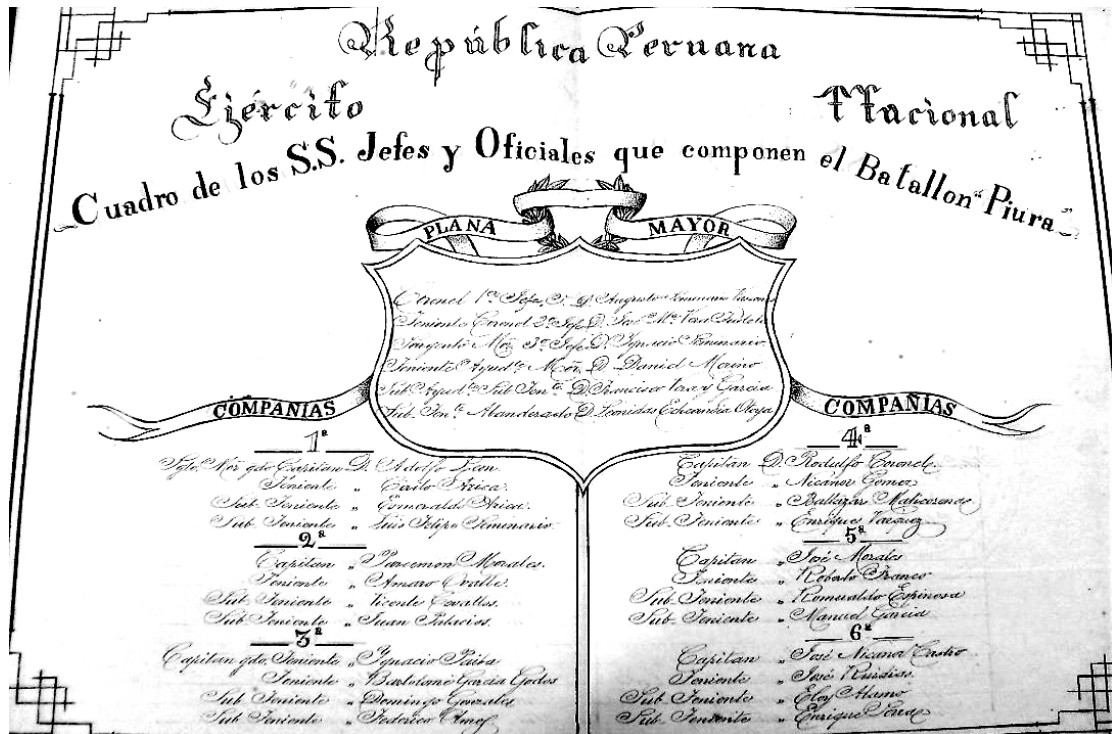 República Peruana
Ejército Nacional
Cuadro de los S.S. Jefes y Oficiales que componen el Batallon "Piura"
PLANA MAYOR
Coronel 1er Jefe, S. D. Augusto Seminario
Teniente Coronel 2o Jefe D. José Ma Vera
Sargento Mor 3er Jefe D. Ygnacio Seminario.
Teniente Ayudte Mor. D. Daniel Merino
Sub Ayudte Sub Tente D. Francisco Vera y Garcia
Sub. Tente Abanderado D. Leonidas Echeandia
COMPAÑIAS
1a
Sgto. Mor gdo Capitan D. Adolfo
Teniente " Arica.
Sub. Teniente " Esmeraldo Arica.
Sub Teniente " Luis Felipe Seminario.
2a
Capitan " Morales.
Teniente " Amaro Ovalle.
Sub Teniente " Vicente Cevallos.
Sub Teniente " Juan Palacios.
3a
Capitan gdo. Teniente " Ygnacio
Teniente " Bartolomé Garcia Godos
Sub Teniente " Domingo Gonzales
Sub Teniente " Federico
COMPAÑIAS
4a
Capitan D. Rodulfo
Teniente " Nicanor Gomez
Sub Teniente " Baltazar
Sub. Teniente " Enrique Vasquez
5a
Capitan " José Morales
Teniente " Roberto Franco
Sub. Teniente " Romualdo Espinosa
Sub. Teniente " Manuel Garcia
6a
Capitan " José Nicanor Castro
Teniente " José
Sub Teniente " Eloy Alamo
Sub Teniente " Enrique